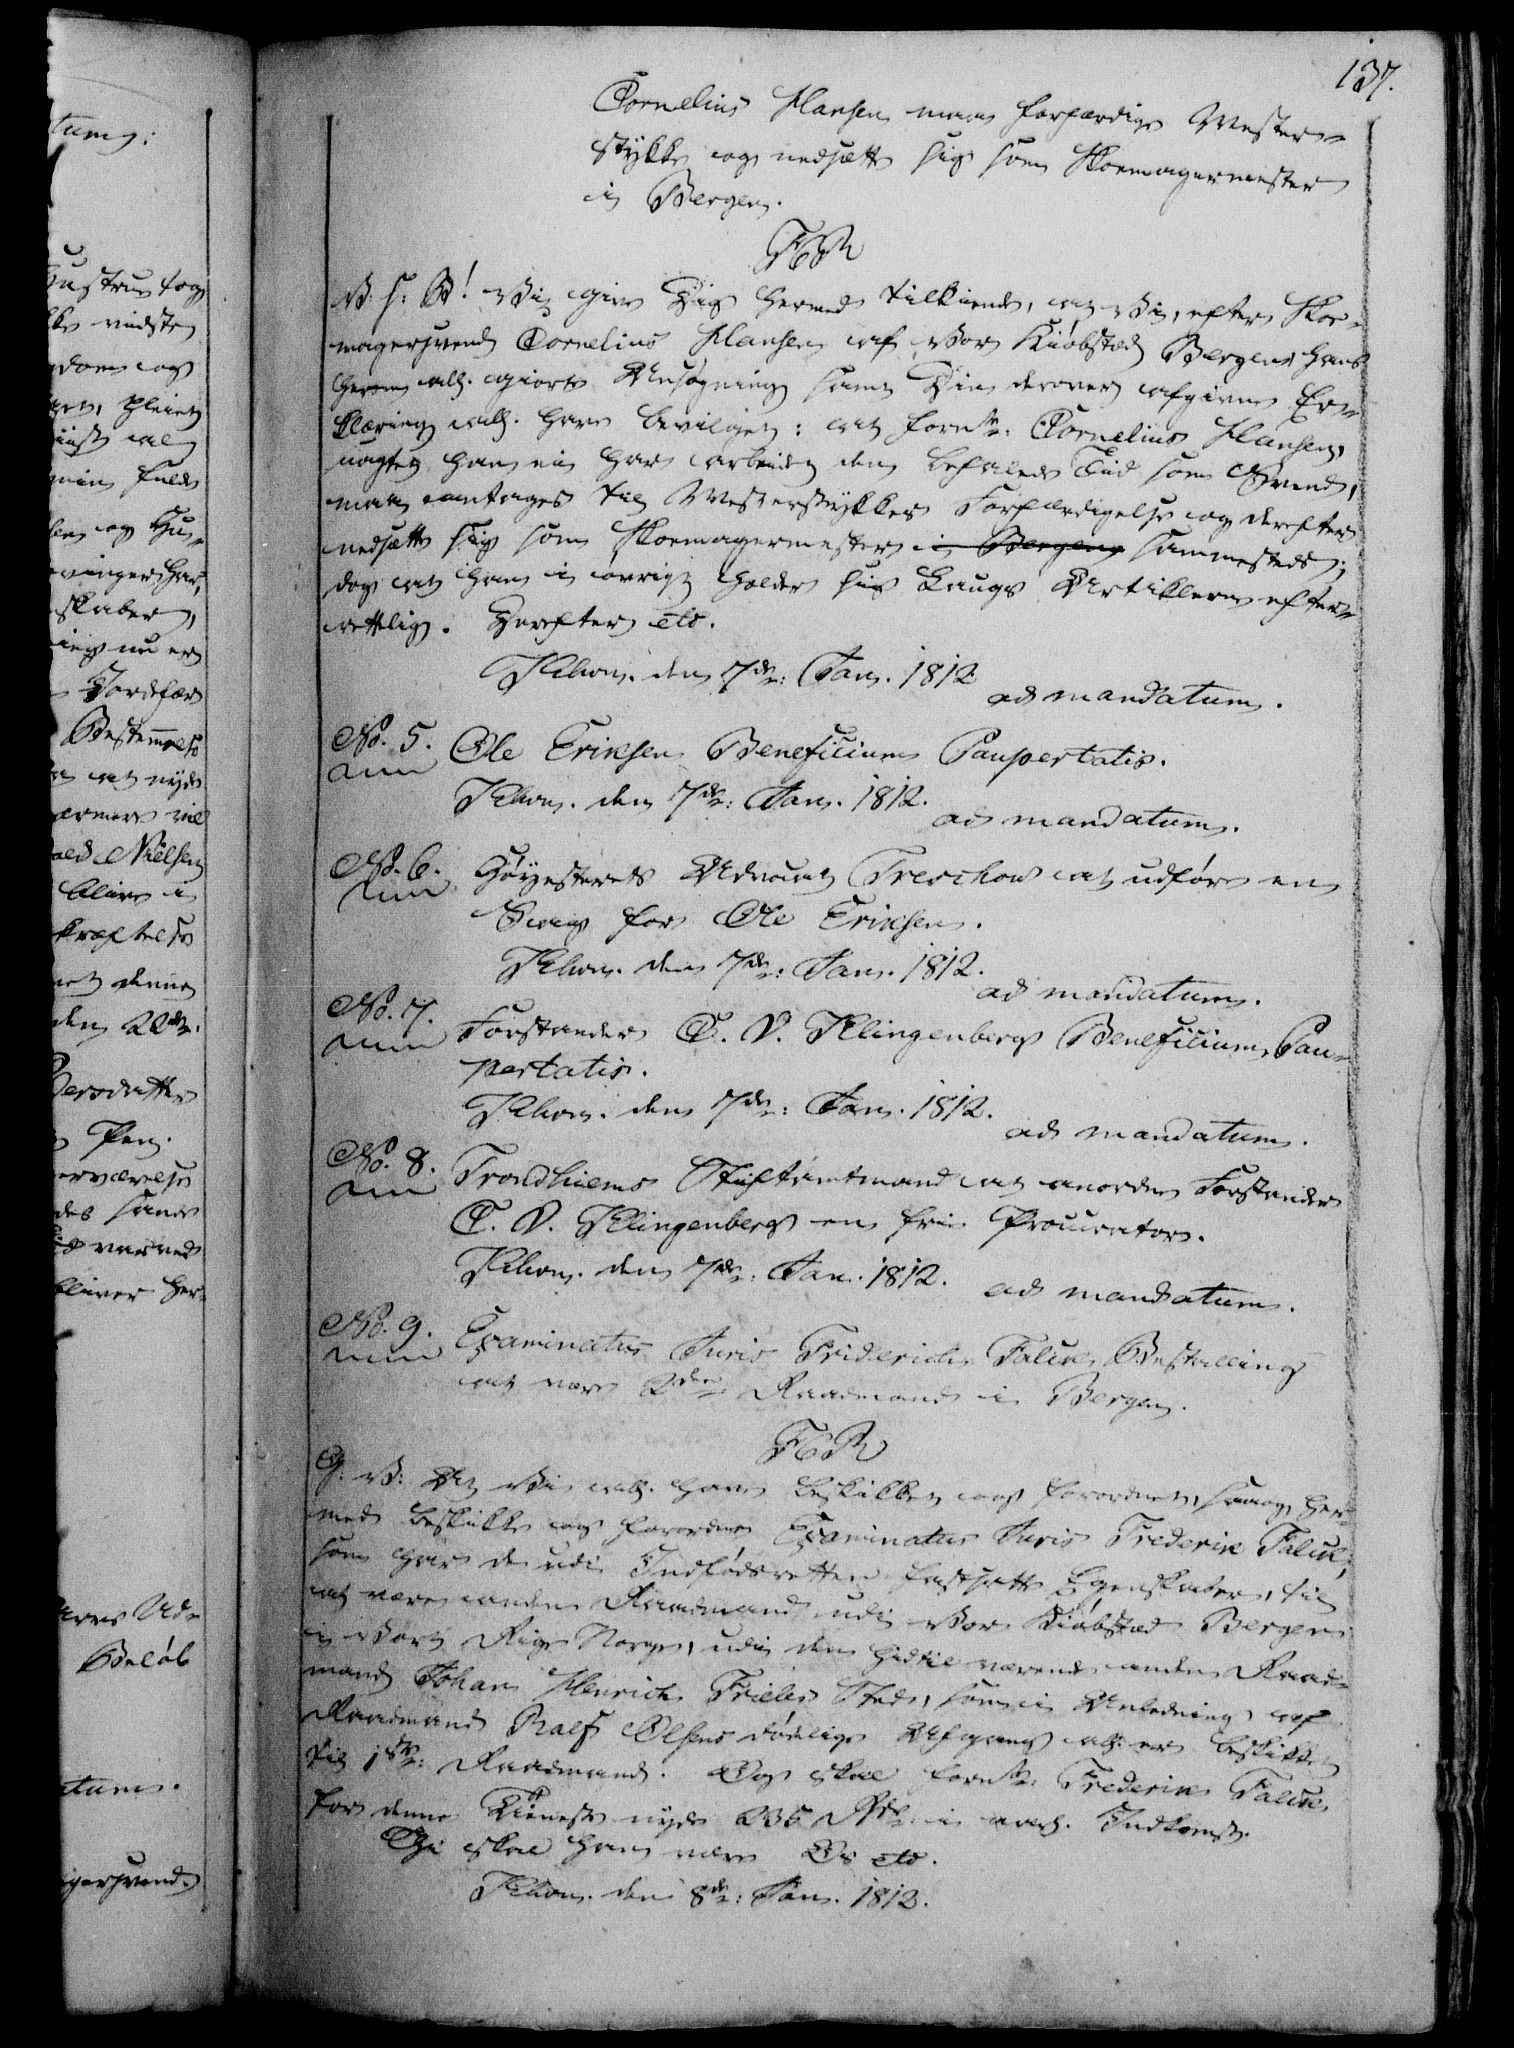 137.
Cornelius Hansen maa forfærdige Mester-
stykke og nedsætte sig som Skoemagermester
i Bergen.
F6R
V: S: B! Vi give Dig hermed tilkiende, at Vi, efter Skoe-
magersvend Cornelius Hansen af Vor Kiøbstad Bergen hans
herom all. giorte Ansøgning samt Din derover afgivne Er-
klæring all. have bevilget: at fornte: Cornelius Hansen,
uagtet han ei har arbeidet den befalede Tiid som Svend,
maa antages til Mesterstykkes Forfærdigelse og derefter
nedsætte sig som Skoemagermester i Bergen sammesteds;
dog at han i øvrigt holder sig Laugs Artiklerne efter-
rettelig. Derefter etc.
Khavn. den 7de: Jan. 1812
ad mandatum.
No. 5. Ole Eriksen Beneficium Paupertatis.
Khavn. den 7de: Jan. 1812.
ad mandatum.
No. 6. Høyesterets Advocat Treschow at udføre en
Sag for Ole Eriksen.
Khavn. den 7de: Jan. 1812.
ad mandatum.
No. 7. Forstander C. V. Klingenberg Beneficium Pau-
pertatis.
Khavn. den 7de: Jan. 1812.
ad mandatum.
No. 8. Trondhiems Stiftamtmand at anordne Forstander
C. V. Klingenberg en frie Procurator.
Khavn. den 7de: Jan. 1812.
ad mandatum.
No. 9. Examinatus Juris Friderich Falck Bestalling
at være 2den Raadmand i Bergen.
F6R
G: V: At Vi all. have beskikket og forordnet, saa og her-
med beskikke og forordne Examinatus Juris Frederik Falck,
som har de udi Indfødsretten fastsatte Egenskaber, til
at være anden Raadmand udi Vor Kiøbstad Bergen
i Vort Rige Norge, udi den hidtil værende anden Raad-
mand Johan Henrich Frieles Sted, som i Anledning af
Raadmand Ralf Olsens dødelige Afgang all. er beskikket
til 1ste: Raadmand. Og skal fornte: Frederik Falck
for denne Tieneste nyde 235 Rdr. i aarl. Indkomst.
Thi skal han være Os etc.
Khavn. den 8de: Jan. 1812.